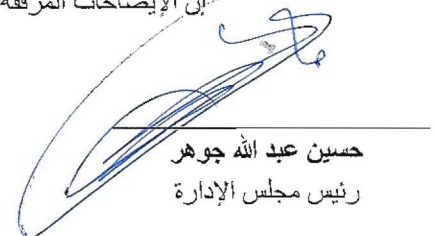 إن الإيضاحات المرفقة
حسين عبد الله جوهر
رئيس مجلس الإدارة